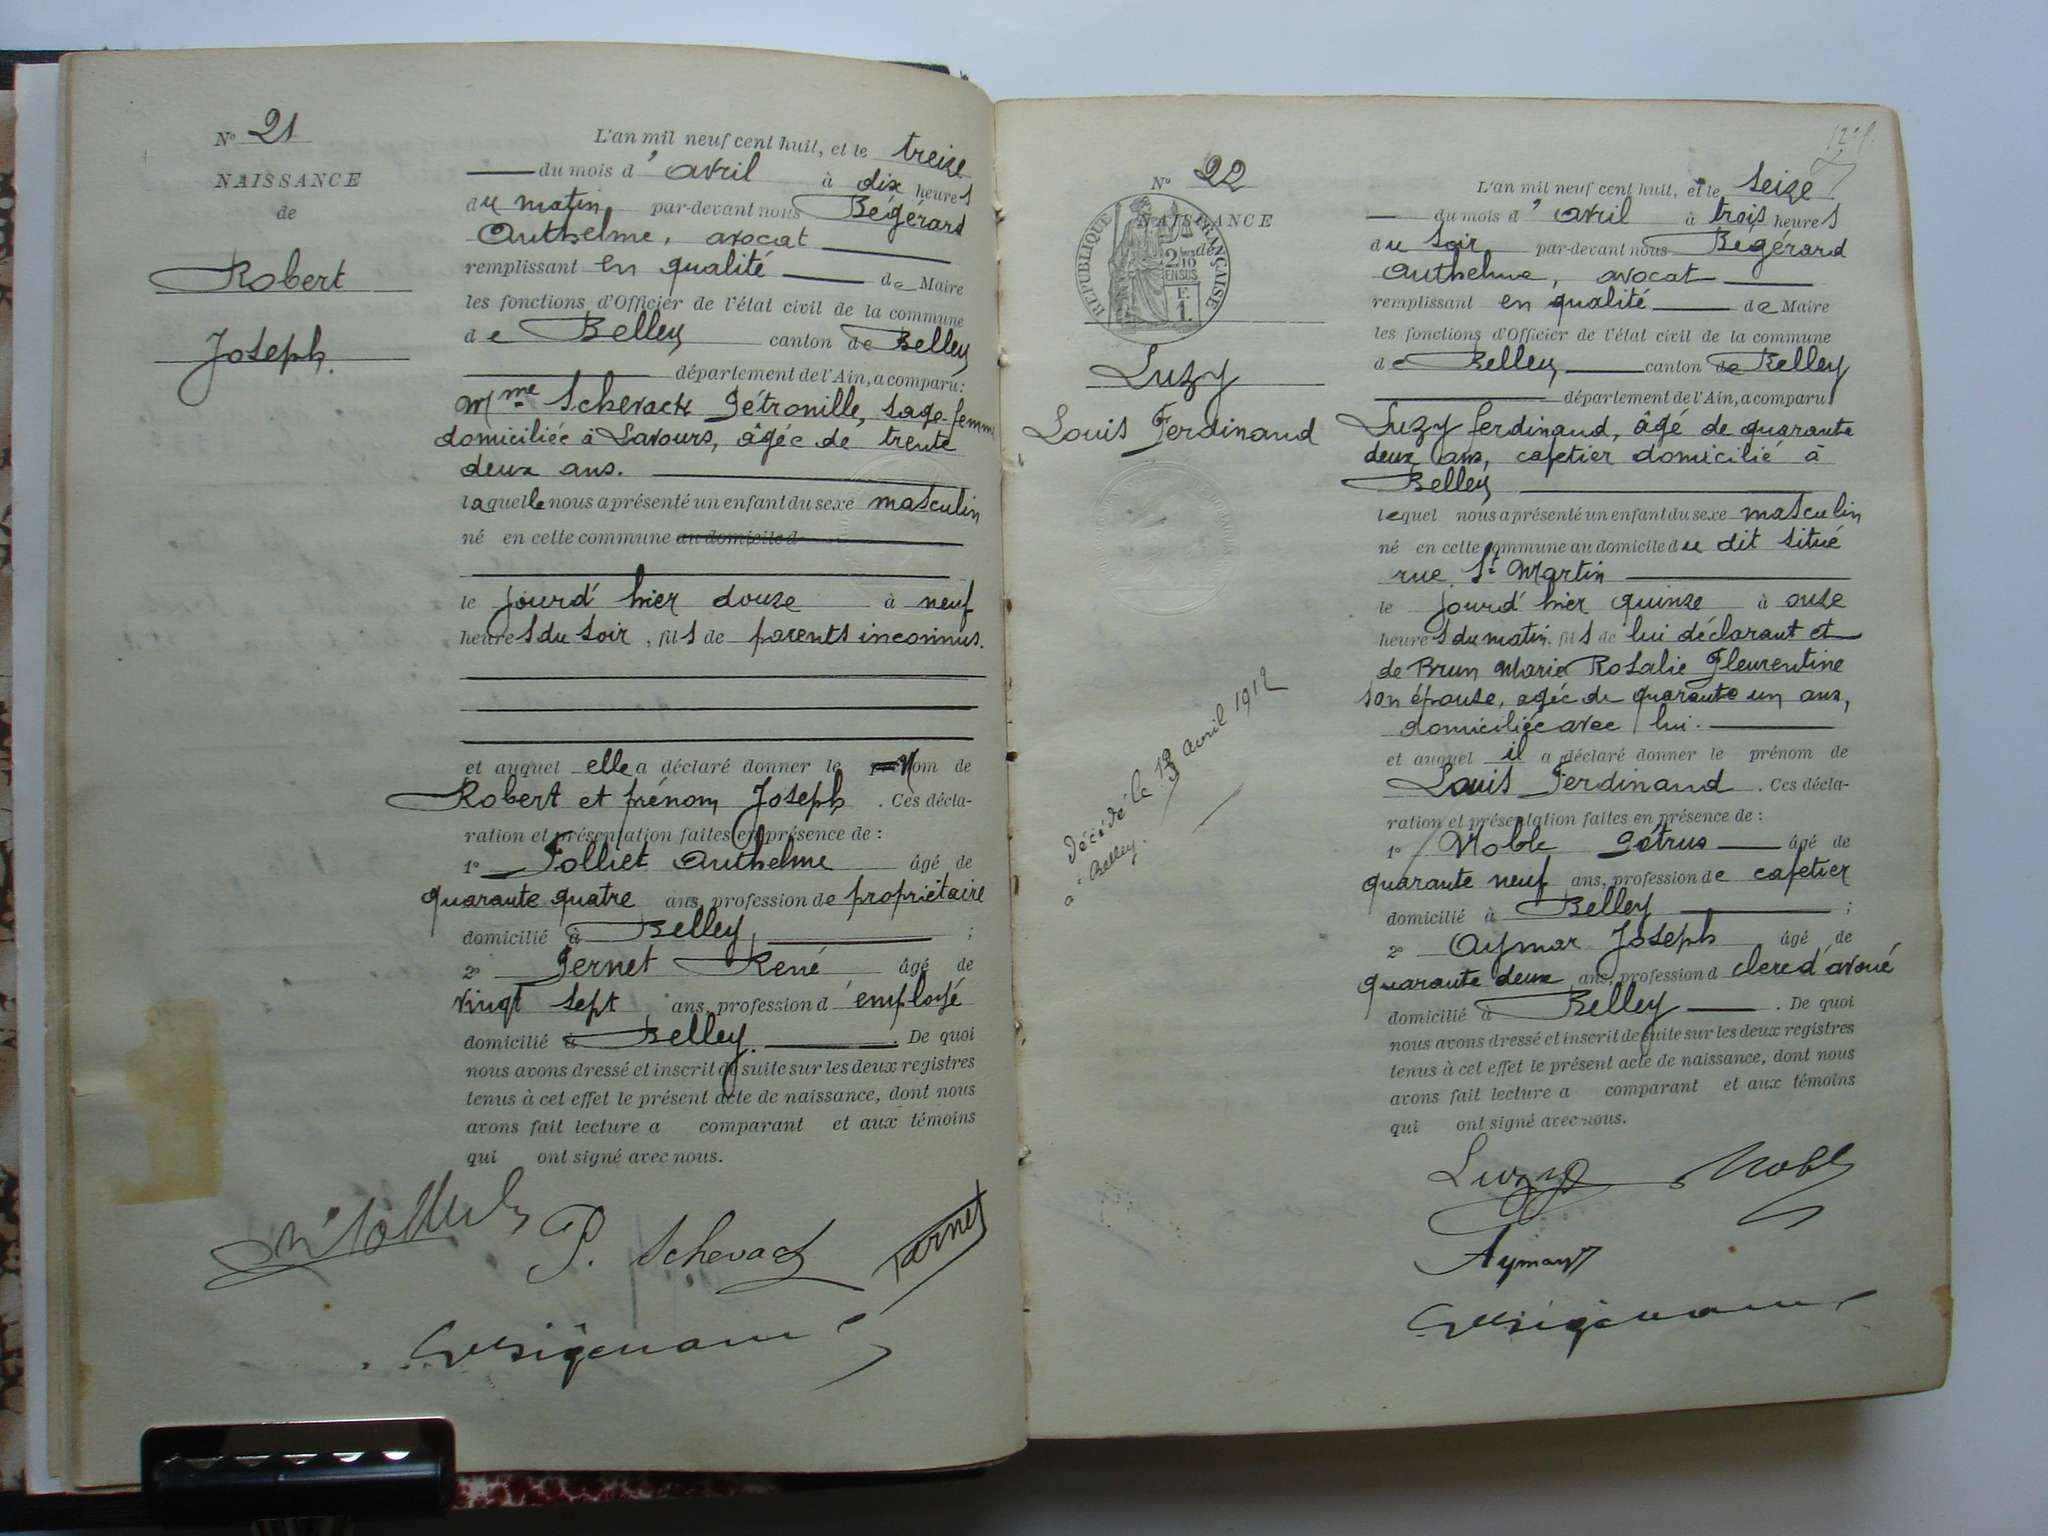 Nº 21
NAISSANCE
de
Robert
Joseph.
L'an mil neuf cent huit, et le treize
du mois d'avril à dix heures
du matin par-devant nous Bégérard
Anthelme, avocat
remplissant en qualité de Maire
les fonctions d'Officier de l'état civil de la commune
de Belley canton de Belley
département de l'Ain, a comparu:
Mme Schevack Pétronille, sage-femme
domiciliée à Lavours, âgée de trente
deux ans.
laquelle nous a présenté un enfant du sexe masculin
né en cette commune au domicile d
le jourd'hier douze à neuf
heures du soir, fils de parents inconnus.
et auquel elle a déclaré donner le nom de
Robert et prénom Joseph. Ces décla-
ration et présentation faites en présence de :
1º Folliet Anthelme âgé de
quarante quatre ans, profession de propriétaire
domicilié à Belley ;
2º Pernet René âgé de
vingt sept ans, profession d'employé
domicilié à Belley. De quoi
nous avons dressé et inscrit de suite sur les deux registres
tenus à cet effet le présent acte de naissance, dont nous
avons fait lecture a comparant et aux témoins
qui ont signé avec nous.
P. Schevack
Nº 22
NAISSANCE
de
REPUBLIQUE FRANÇAISE
2/10 EN SUS
F. 1.
Luzy
Louis Ferdinand
Décédé le 13 avril 1912
à Belley.
L'an mil neuf cent huit, et le seize
du mois d'avril à trois heures
du soir par-devant nous Bégérard
Anthelme, avocat
remplissant en qualité de Maire
les fonctions d'Officier de l'état civil de la commune
de Belley canton de Belley
département de l'Ain, a comparu
Luzy Ferdinand, âgé de quarante
deux ans, cafetier domicilié à
Belley
lequel nous a présenté un enfant du sexe masculin
né en cette commune au domicile du dit situé
rue St Martin
le jourd'hier quinze à onze
heures du matin fils de lui déclarant et
de Brun Marie Rosalie Fleurentine
son épouse, agée de quarante un ans,
domiciliée avec lui.
et auquel il a déclaré donner le prénom de
Louis Ferdinand. Ces décla-
ration et présentation faites en présence de :
1º Noble Pétrus âgé de
quarante neuf ans, profession de cafetier
domicilié à Belley ;
2º Aymar Joseph âgé de
quarante deux ans, profession d clerc d'avoué
domicilié à Belley. De quoi
nous avons dressé et inscrit de suite sur les deux registres
tenus à cet effet le présent acte de naissance, dont nous
avons fait lecture a comparant et aux témoins
qui ont signé avec nous.
Luzy Noble
Aymar